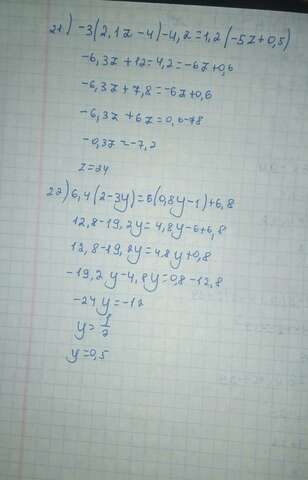 21) -3(2,1z-4)-4,2=1,2(-5z+0,5)
-6,3z+12-4,2=-6z+0,6
-6,3z+7,8=-6z+0,6
-6,3z+6z=0,6-7,8
-0,3z=-7,2
z=24
22) 6,4(2-3y)=6(0,8y-1)+6,8
12,8-19,2y=4,8y-6+6,8
12,8-19,2y=4,8y+0,8
-19,2y-4,8y=0,8-12,8
-24y=-12
y=1/2
y=0,5